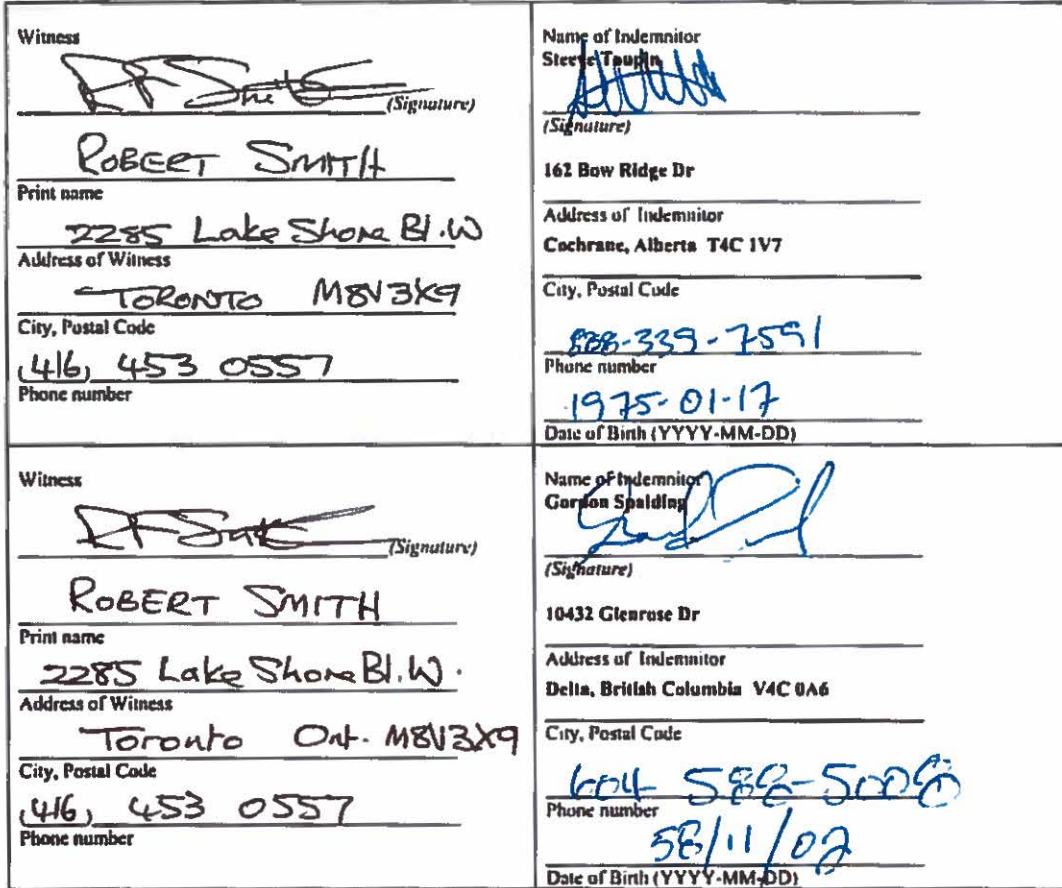 Witness
(Signature)
ROBERT SMITH
Print name
2285 Lake Shore Bl.W
Address of Witness
TORONTO M8V3X9
City, Postal Code
(416) 453 0557
Phone number
Name of Indemnitor
Steeve Toupin
(Signature)
162 Bow Ridge Dr
Address of Indemnitor
Cochrane, Alberta T4C 1V7
City, Postal Code
888-339-7591
Phone number
1975-01-17
Date of Birth (YYYY-MM-DD)
Witness
(Signature)
ROBERT SMITH
Print name
2285 Lake Shore Bl.W.
Address of Witness
Toronto Ont. M8V3X9
City, Postal Code
(416) 453 0557
Phone number
Name of Indemnitor
Gordon Spalding
(Signature)
10432 Glenrose Dr
Address of Indemnitor
Delta, British Columbia V4C 0A6
City, Postal Code
604 588-5008
Phone number
58/11/02
Date of Birth (YYYY-MM-DD)